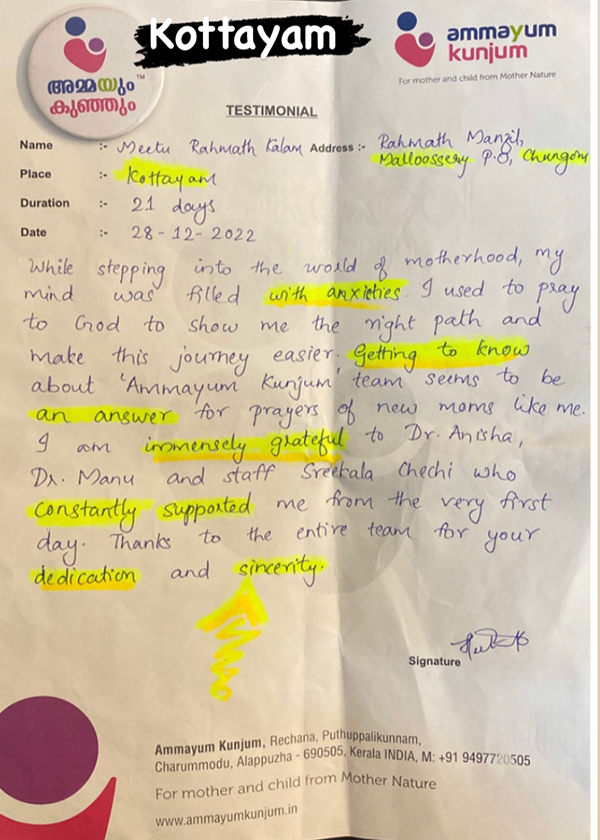 Kottayam
അമ്മയും™
കുഞ്ഞും
ammayum
kunjum
For mother and child from Mother Nature
TESTIMONIAL
Name :- Meetu Rahmath Kalam Address :- Rahmath Manzil,
Malloossery P.O, Chungom
Place :- Kottayam
Duration :- 21 days
Date :- 28-12-2022
While stepping into the world of motherhood, my
mind was filled with anxieties. I used to pray
to God to show me the right path and
make this journey easier. Getting to know
about 'Ammayum Kunjum' team seems to be
an answer for prayers of new moms like me.
I am immensely grateful to Dr. Anisha,
Dr. Manu and staff Sreekala Chechi who
constantly supported me from the very first
day. Thanks to the entire team for your
dedication and sincerity.
Signature
Ammayum Kunjum, Rechana, Puthuppalikunnam,
Charummodu, Alappuzha - 690505, Kerala INDIA, M: +91 9497720505
For mother and child from Mother Nature
www.ammayumkunjum.in